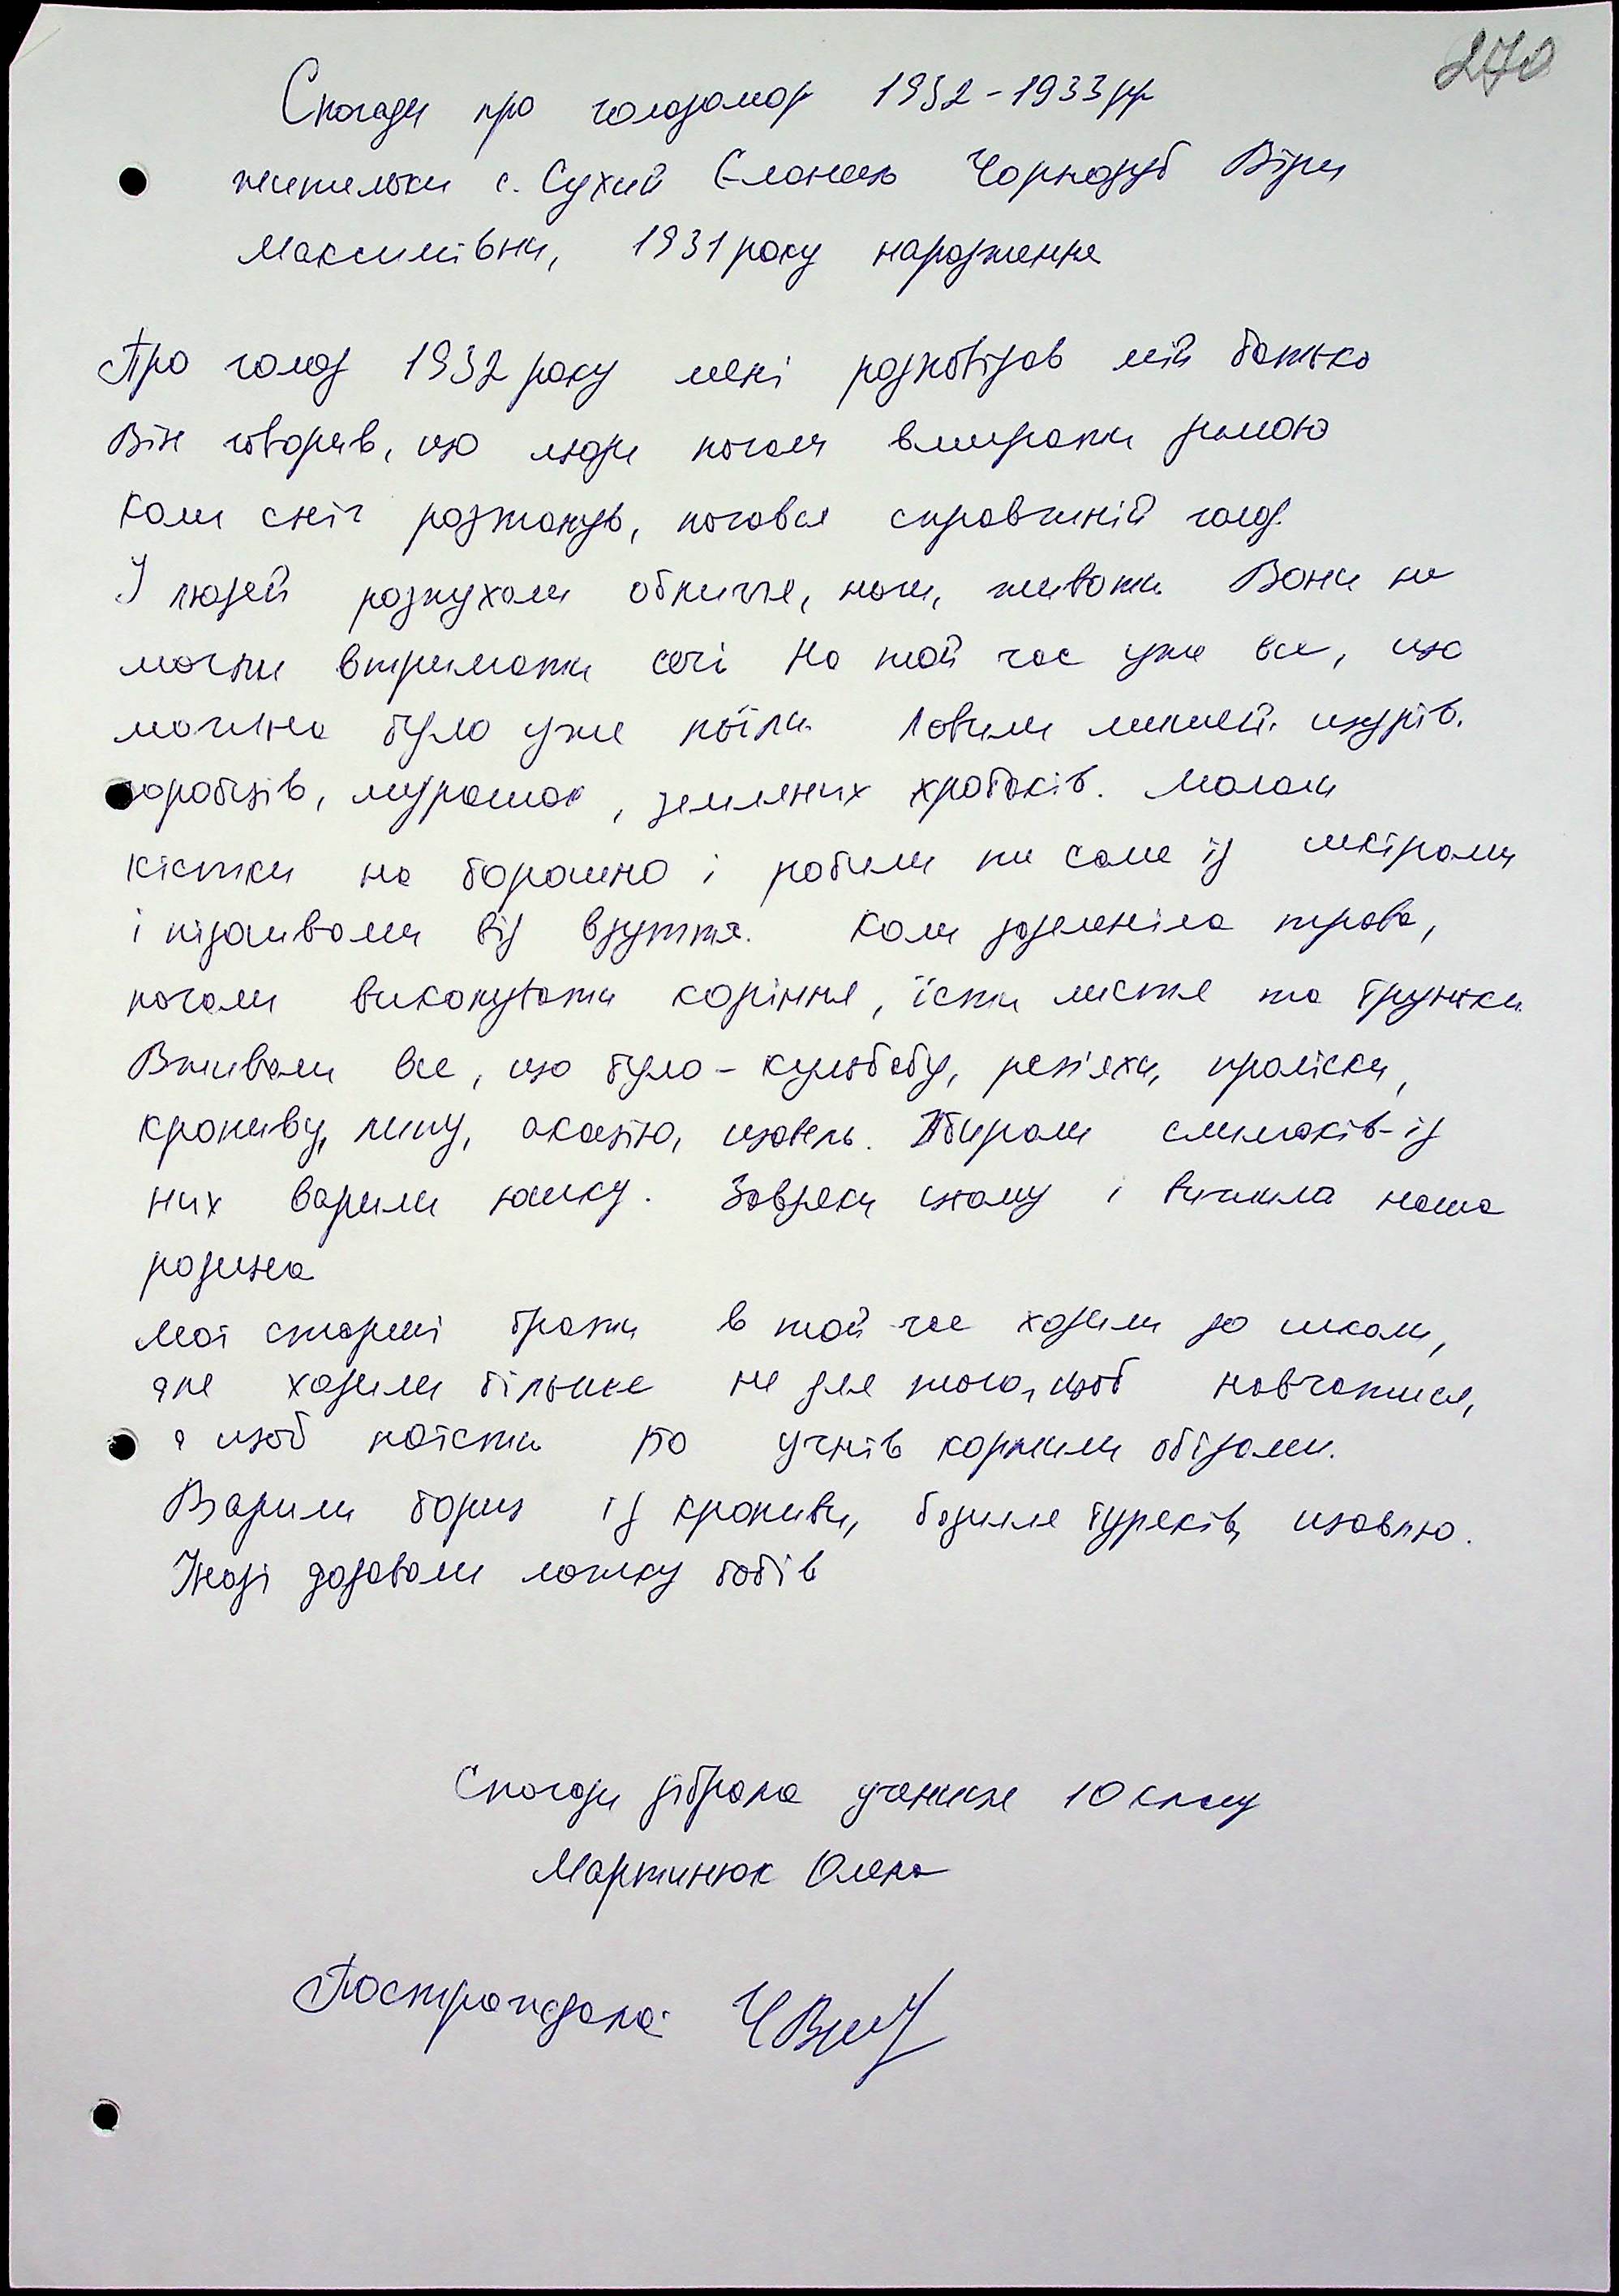 270
Спогади про голодомор 1932-1933 рр
жительки с. Сухий Єланець Чорнозуб Віри
Максимівни, 1931 року народження
Про голод 1932 року мені розповідав мій батько
Він говорив, що люди почали вмирати зимою
Коли сніг розтанув, почався справжній голод.
У людей розпухали обличчя, ноги, животи. Вони не
могли втримати сечі На той час уже все, що
можна було уже поїли. Ловили мишей, щурів,
горобців, мурашок, земляних хробаків. Мололи
кістки на борошно і робили те саме із шкірами
і підошвами від взуття. Коли зазеленіла трава,
почали викопувати коріння, їсти листя та бруньки.
Вживали все, що було - кульбабу, реп'яхи, проліски,
кропиву, липу, акацію, щавель. Збирали слимаків - із
них варили юшку. Завдяки цьому і вижила наша
родина
Мої старші брати в той час ходили до школи,
але ходили більше не для того, щоб навчатися,
а щоб поїсти бо учнів кормили обідами.
Варили борщ із кропиви, бадилля буряків, щавлю.
Іноді додавали ложку бобів
Спогади зібрала учениця 10 класу
Мартинюк Олена
Постраждала: